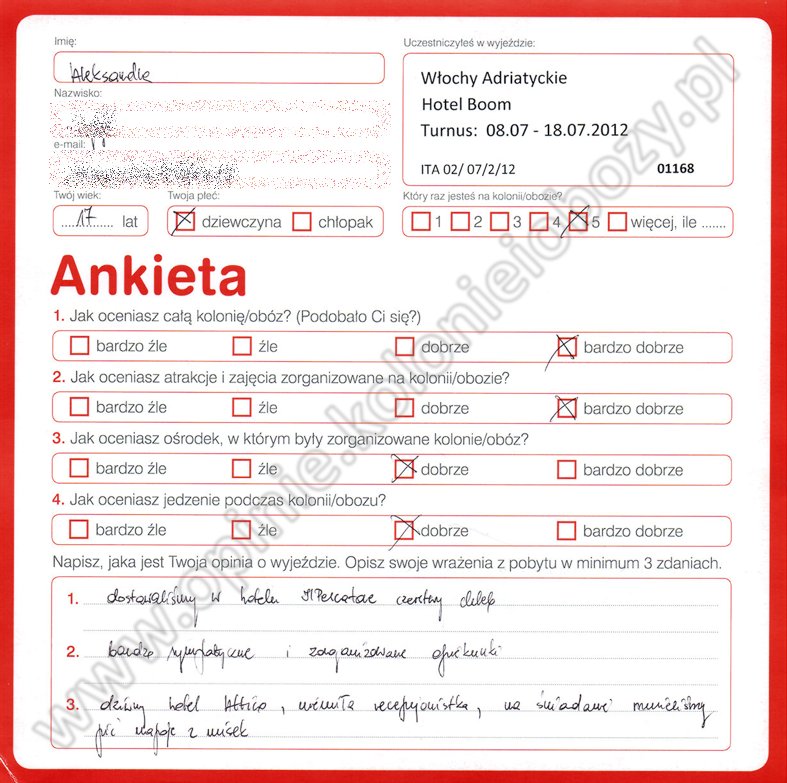 Imię:
Aleksandra
Nazwisko:
e-mail:
Twój wiek:
17 lat
Twoja płeć:
dziewczyna chłopak
Uczestniczyłeś w wyjeździe:
Włochy Adriatyckie
Hotel Boom
Turnus: 08.07 - 18.07.2012
ITA 02/ 07/2/12 01168
Który raz jesteś na kolonii/obozie?
1 2 3 4 5 więcej, ile .......
Ankieta
1. Jak oceniasz całą kolonię/obóz? (Podobało Ci się?)
bardzo źle źle dobrze bardzo dobrze
2. Jak oceniasz atrakcje i zajęcia zorganizowane na kolonii/obozie?
bardzo źle źle dobrze bardzo dobrze
3. Jak oceniasz ośrodek, w którym były zorganizowane kolonie/obóz?
bardzo źle źle dobrze bardzo dobrze
4. Jak oceniasz jedzenie podczas kolonii/obozu?
bardzo źle źle dobrze bardzo dobrze
Napisz, jaka jest Twoja opinia o wyjeździe. Opisz swoje wrażenia z pobytu w minimum 3 zdaniach.
1. dostawaliśmy w hotelu czerstwy chleb
2. bardzo sympatyczne i zorganizowane opiekunki
3. dziwny hotel , niemiła recepcjonistka, na śniadanie musieliśmy
pić napoje z misek
www.opinie.kolonieiobozy.pl